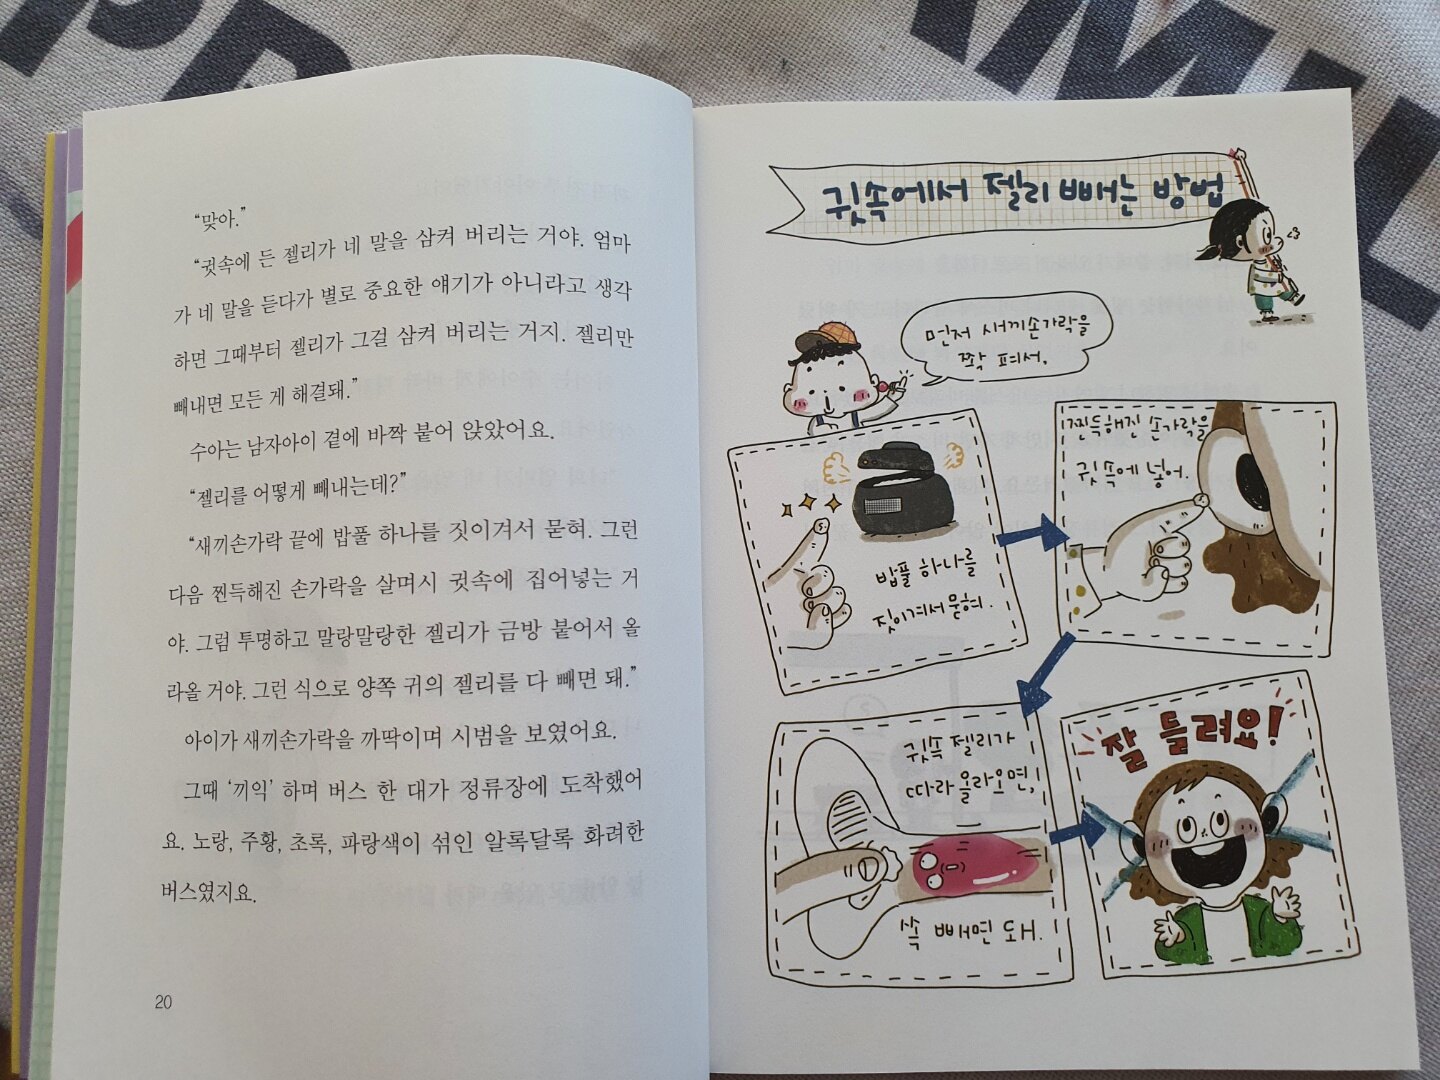 "맞아."
"귓속에 든 젤리가 네 말을 삼켜 버리는 거야. 엄마
가 네 말을 듣다가 별로 중요한 얘기가 아니라고 생각
하면 그때부터 젤리가 그걸 삼켜 버리는 거지. 젤리만
빼내면 모든 게 해결돼."
수아는 남자아이 곁에 바짝 붙어 앉았어요.
"젤리를 어떻게 빼내는데?"
"새끼손가락 끝에 밥풀 하나를 짓이겨서 묻혀. 그런
다음 찐득해진 손가락을 살며시 귓속에 집어넣는 거
야. 그럼 투명하고 말랑말랑한 젤리가 금방 붙어서 올
라올 거야. 그런 식으로 양쪽 귀의 젤리를 다 빼면 돼."
아이가 새끼손가락을 까딱이며 시범을 보였어요.
그때 '끼익' 하며 버스 한 대가 정류장에 도착했어
요. 노랑, 주황, 초록, 파랑색이 섞인 알록달록 화려한
버스였지요.
20
귓속에서 젤리 빼는 방법
먼저 새끼손가락을
쫙 펴서,
밥풀 하나를
짓이겨서 묻혀.
찐득해진 손가락을
귓속에 넣어.
귓속 젤리가
따라 올라오면,
쏙 빼면 돼.
잘 들려요!